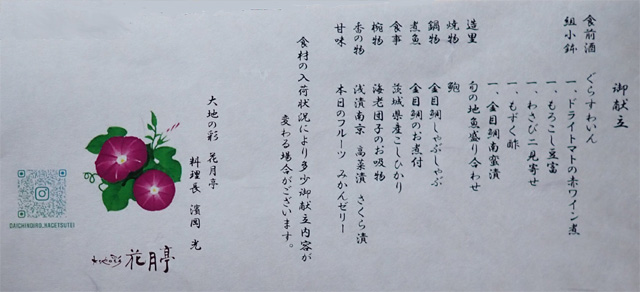 御献立
食前酒 ぐらすわいん
組小鉢 一、ドライトマトの赤ワイン煮
一、もろこし豆富
一、わさび二見寄せ
一、もずく酢
一、金目鯛南蛮漬
造里 旬の地魚盛り合わせ
焼物 鮑
鍋物 金目鯛しゃぶしゃぶ
煮魚 金目鯛のお煮付
食事 茨城県産こしひかり
椀物 海老団子のお吸物
香の物 浅漬南京 高菜漬 さくら漬
甘味 本日のフルーツ みかんゼリー
食材の入荷状況により多少御献立内容が
変わる場合がございます。
大地の彩 花月亭
料理長 濱岡 光
DAICHINOIRO_KAGETSUTEI
大地の彩 花月亭